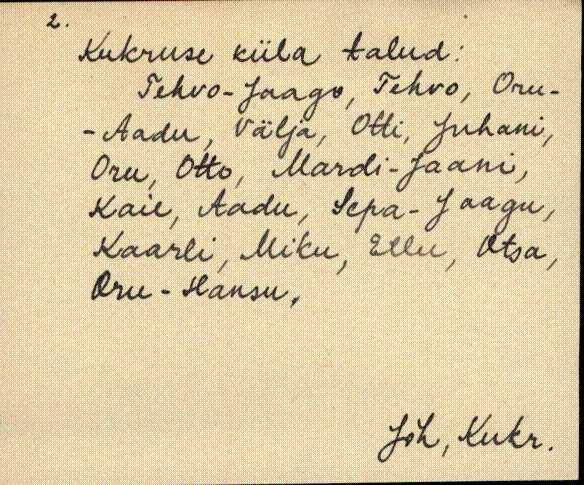 2.
Kukruse küla talud:
Tehvo-Jaago, Tehvo, Oru-
-Aadu, Välja, Otti, Juhani,
Oru, Otto, Mardi-Jaani,
Kaie, Aadu, Sepa-Jaagu,
Kaarli, Miku, Ellu, Otsa,
Oru-Hansu.
Jõh, Kukr.